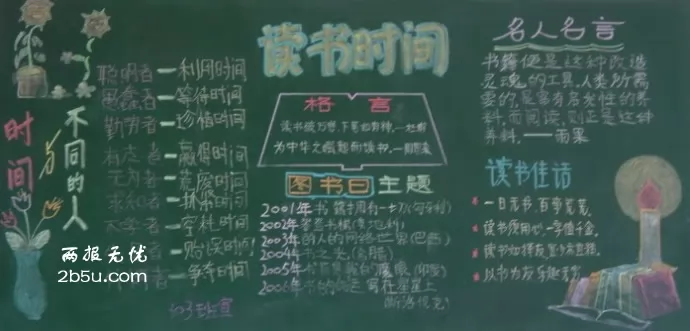 不同的人
与
时间
聪明者—利用时间
愚蠢者—等待时间
勤劳者—珍惜时间
有志者—赢得时间
无为者—荒废时间
求知者—抓紧时间
—空耗时间
—贻误时间
者—争夺时间
读书时间
格言
读书破万卷,下笔如有神,—杜甫
为中华之崛起而读书,—周恩来
图书日主题
2001年书
2002年
2003年的人的网络世界(巴西)
2004年书之光(希腊)
2005年书 是我的 (印度)
2006年书的 写在星星上
(斯洛伐克)
名人名言
书籍便是这种改造
灵魂的工具,人类所需
要的,是富有启发性的养
料,而阅读,则正是这种
养料。——雨果
读书佳话
一日无书,百事荒芜。
读书须用心,一字值千金。
读书如择友
以书为友
两报无忧
2b5u.com